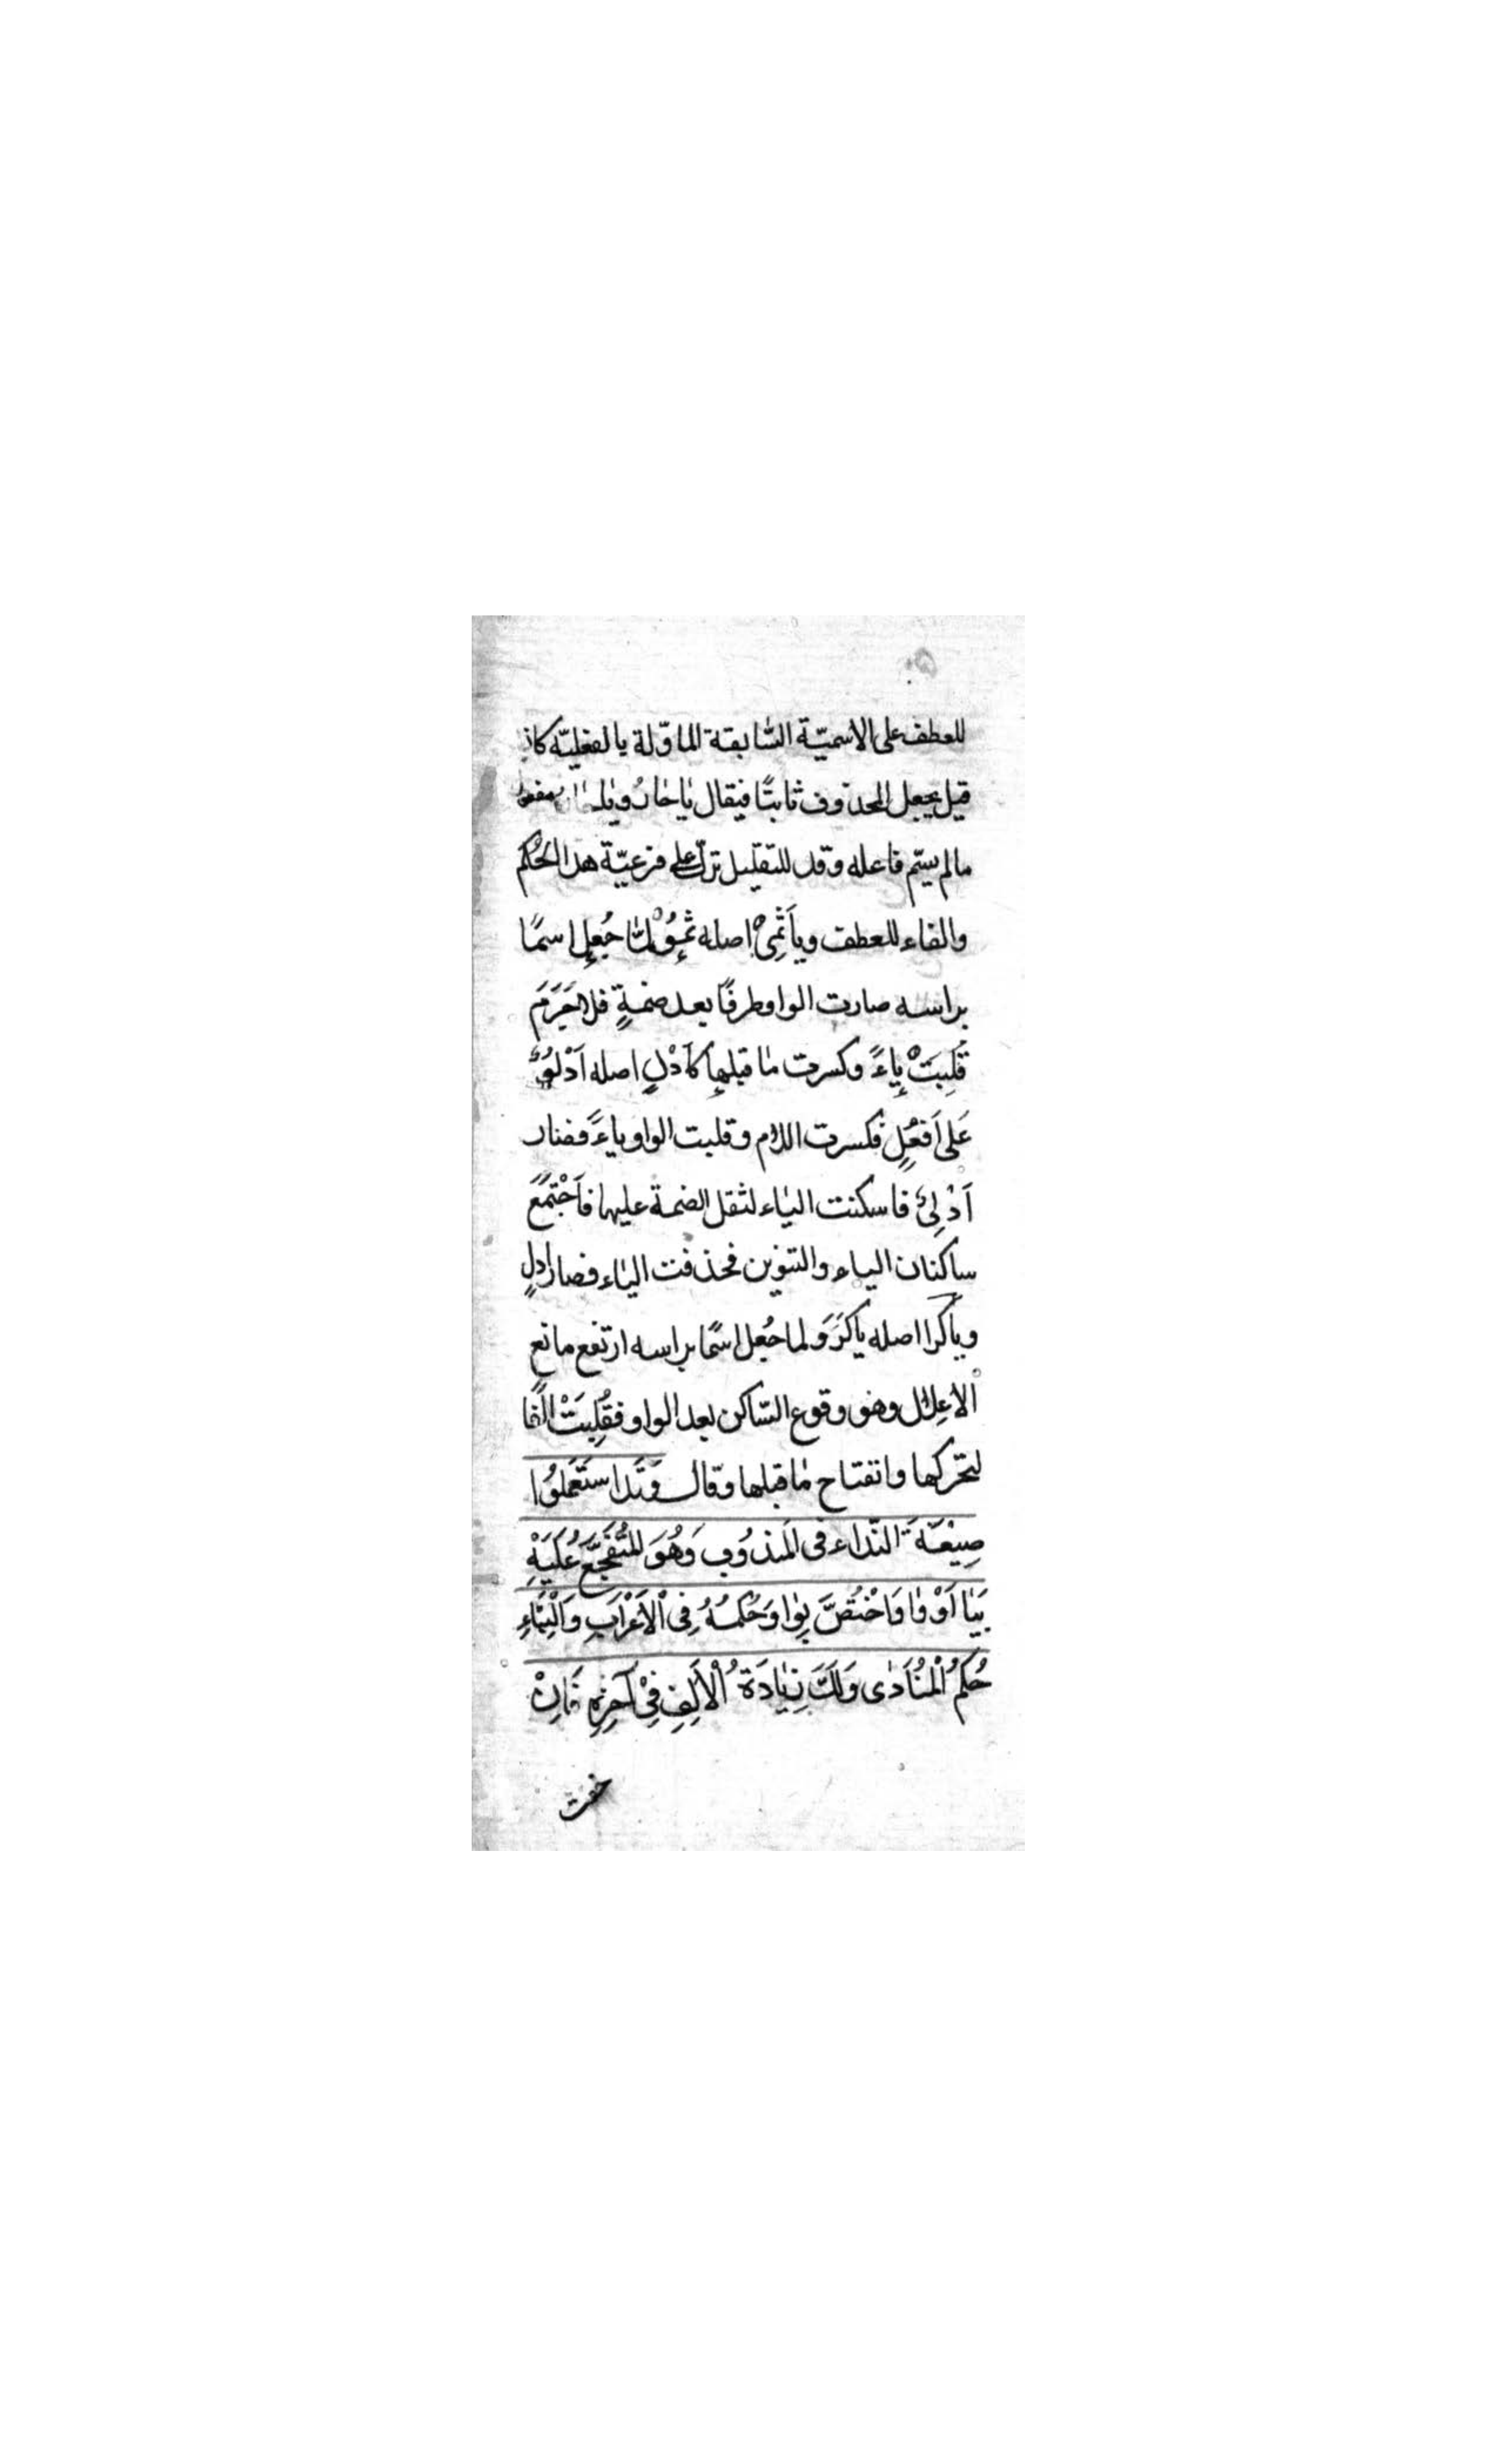 للعطف على الاسميّة السّابقة الماوّلة بالفعليّة كانه
قيل يجعل المحذوف ثابتًا فيقال يا حارُ ويا مفعول
مالم يسمّ فاعله وقد للتقليل تدلّ على فرعيّة هذا الحُكم
والفاء للعطف ويا ثَمِىْ اصله ثَمُوْ لمّا جُعِل اسمًا
براسه صارت الواو طرفًا بعد ضمةٍ فلا جَرَمَ
قُلِبَتْ ياءً وكسرت ما قبلها كَاَدْلٍ اصله اَدْلُوٌ
عَلى اَفعُلٍ فكسرت اللام وقلبت الواو ياءً فصار
اَدْلِىٌ فاسكنت الياء لثقل الضمة عليها فاَجْتَمَعَ
ساكنان الياء والتنوين فحذفت الياء فصار ادلٍ
وياكرا اصله ياكَرَوَ ولما جُعِل اسمًا براسه ارتفع مانع
الاعلال وهو وقوع السّاكن بعد الواو فقُلِبَتْ الفًا
لتحرّكها وانفتاح ما قبلها وقال وَقَد استَعمَلُوا
صِيْغَةَ النّداء فى المَندُوبِ وَهُوَ المُتَفَجَّعُ عَلَيْهِ
بِيَا اَوْ وَا وَاخْتُصَّ بِوَا وَحُكمُهُ فِى الْاَعْرَابِ وَالْبِنَاءِ
حُكمُ الْمُنَادٰى وَلَكَ زِيَادَةُ الْاَلِفِ فِىْ آخِرِهِ فَاِنْ
خفت